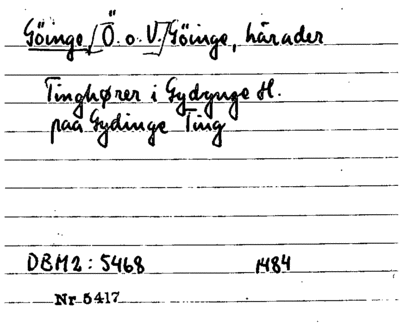 Göinge, [Ö. o. V.] Göinge, härader
Tinghører i Gydynge H.
paa Gydinge Ting
DBM2: 5468 1484
Nr 5417